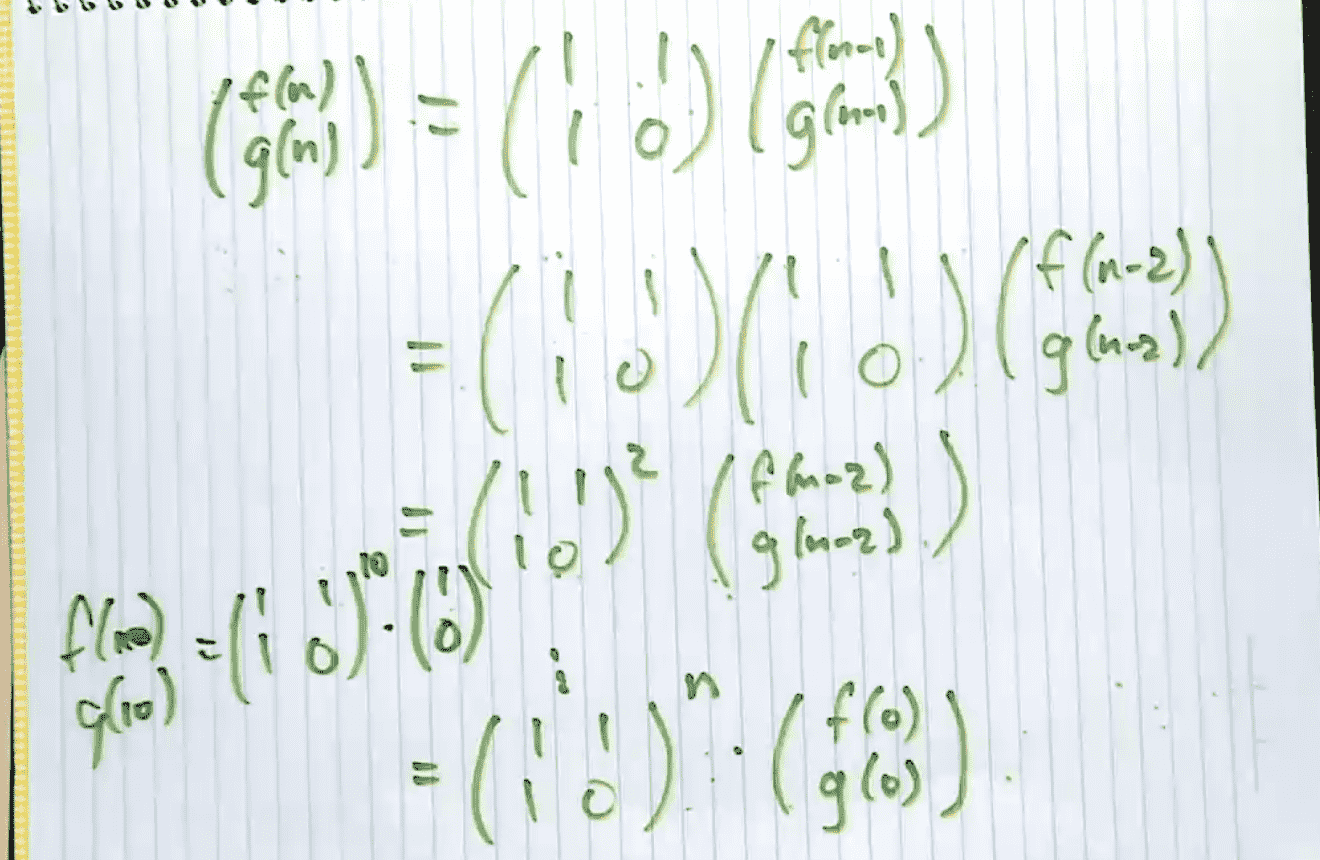 (f(n) g(n)) = (1 1 1 0) (f(n-1) g(n-1))
= (1 1 1 0) (1 1 1 0) (f(n-2) g(n-2))
= (1 1 1 0)^2 (f(n-2) g(n-2))
f(10) g(10) = (1 1 1 0)^10 · (1 0)
⋮
= (1 1 1 0)^n · (f(0) g(0))